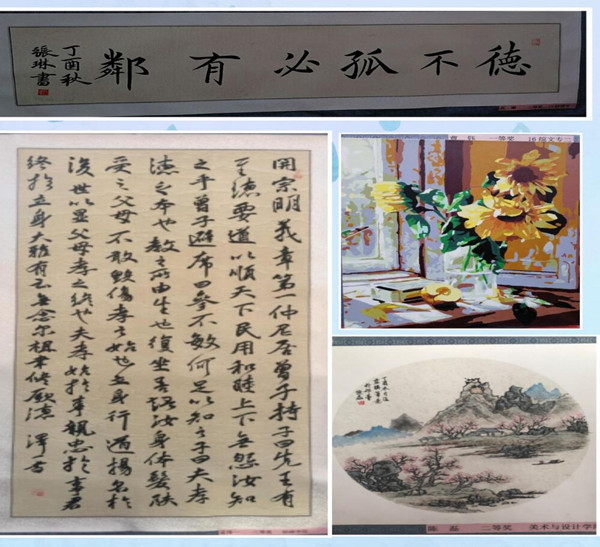 德不孤必有鄰
丁酉秋
張琳書
開宗明義章第一仲尼居曾子持子曰先王有
至德要道以順天下民用和睦上下無怨汝知
之乎曾子避席曰參不敏何足以知之子曰夫孝
德之本也教之所由生也復坐吾語汝身體髮膚
受之父母不敢毀傷孝之始也立身行道揚名於
後世以显父母孝之終也夫孝始於事親忠於事君
終於立身大雅有云無念爾祖聿修厥德
一等奖 16级文专
二等奖
陈磊 二等奖 美术与设计学